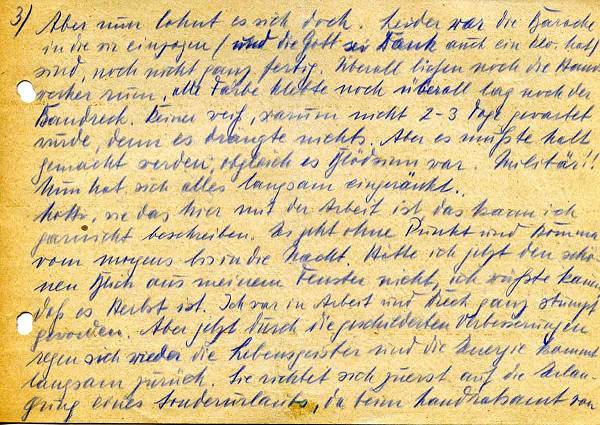 3) Aber nun lohnt es sich doch. Leider war die Baracke
in die wir einzogen (und die Gott sei Dank auch ein Klo. hat)
sind, noch nicht ganz fertig. Überall liefen noch die Hand
werker rum, alle Farbe klebte noch überall lag noch der
Baudreck. Keiner weiß, warum nicht 2-3 Tage gewartet
wurde, denn es drängte nichts. Aber es mußte halt
gemacht werden, obgleich es Blödsinn war. Militär!!
Nun hat sich alles langsam eingeränkt.
wie das hier mit der Arbeit ist das kann ich
garnicht beschreiben. Es geht ohne Punkt und Komma
vom morgens bis in die Nacht. Hätte ich jetzt den schö
nen Blick aus meinem Fenster nicht, ich wüßte kaum
daß es Herbst ist. Ich war in Arbeit und Dreck ganz stumpf
geworden. Aber jetzt durch die geschilderten Verbesserungen
regen sich wieder die Lebensgeister und die Energie kommt
langsam zurück. Sie richtet sich zuerst auf die Erlan-
gung eines Sonderurlaubs, da beim Landratsamt von